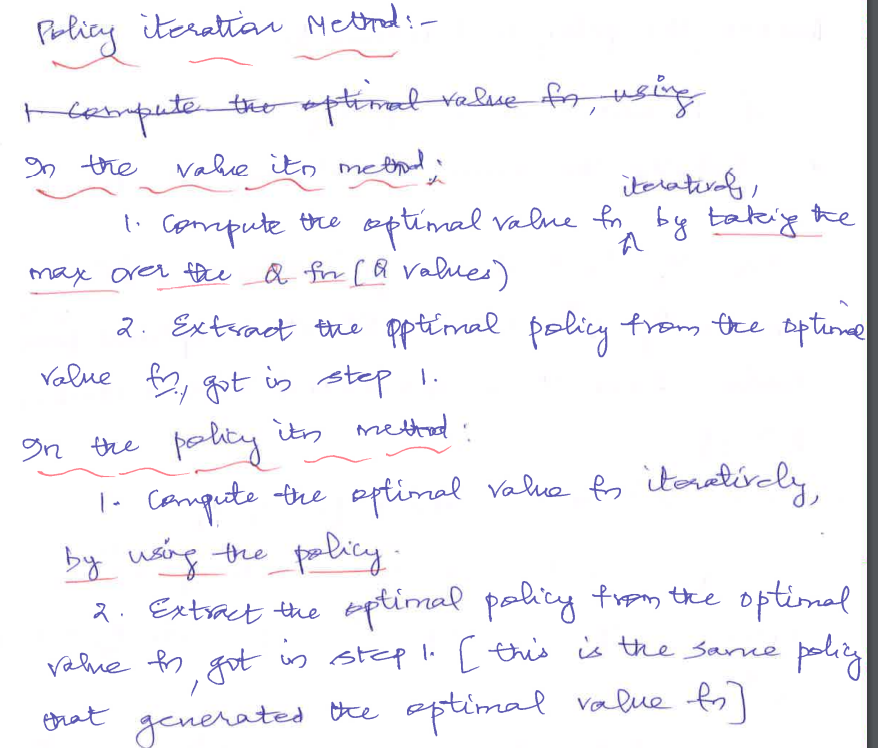 Policy iteration Method:-
1 Compute the optimal value fn, using
In the value itn method:
iteratively,
1. Compute the optimal value fn by taking the
max over the Q fn (Q values)
2. Extract the optimal policy from the optimal
value fn, got in step 1.
In the policy itn method:
1. Compute the optimal value fn iteratively,
by using the policy.
2. Extract the optimal policy from the optimal
value fn, got in step 1. [this is the same policy
that generated the optimal value fn]